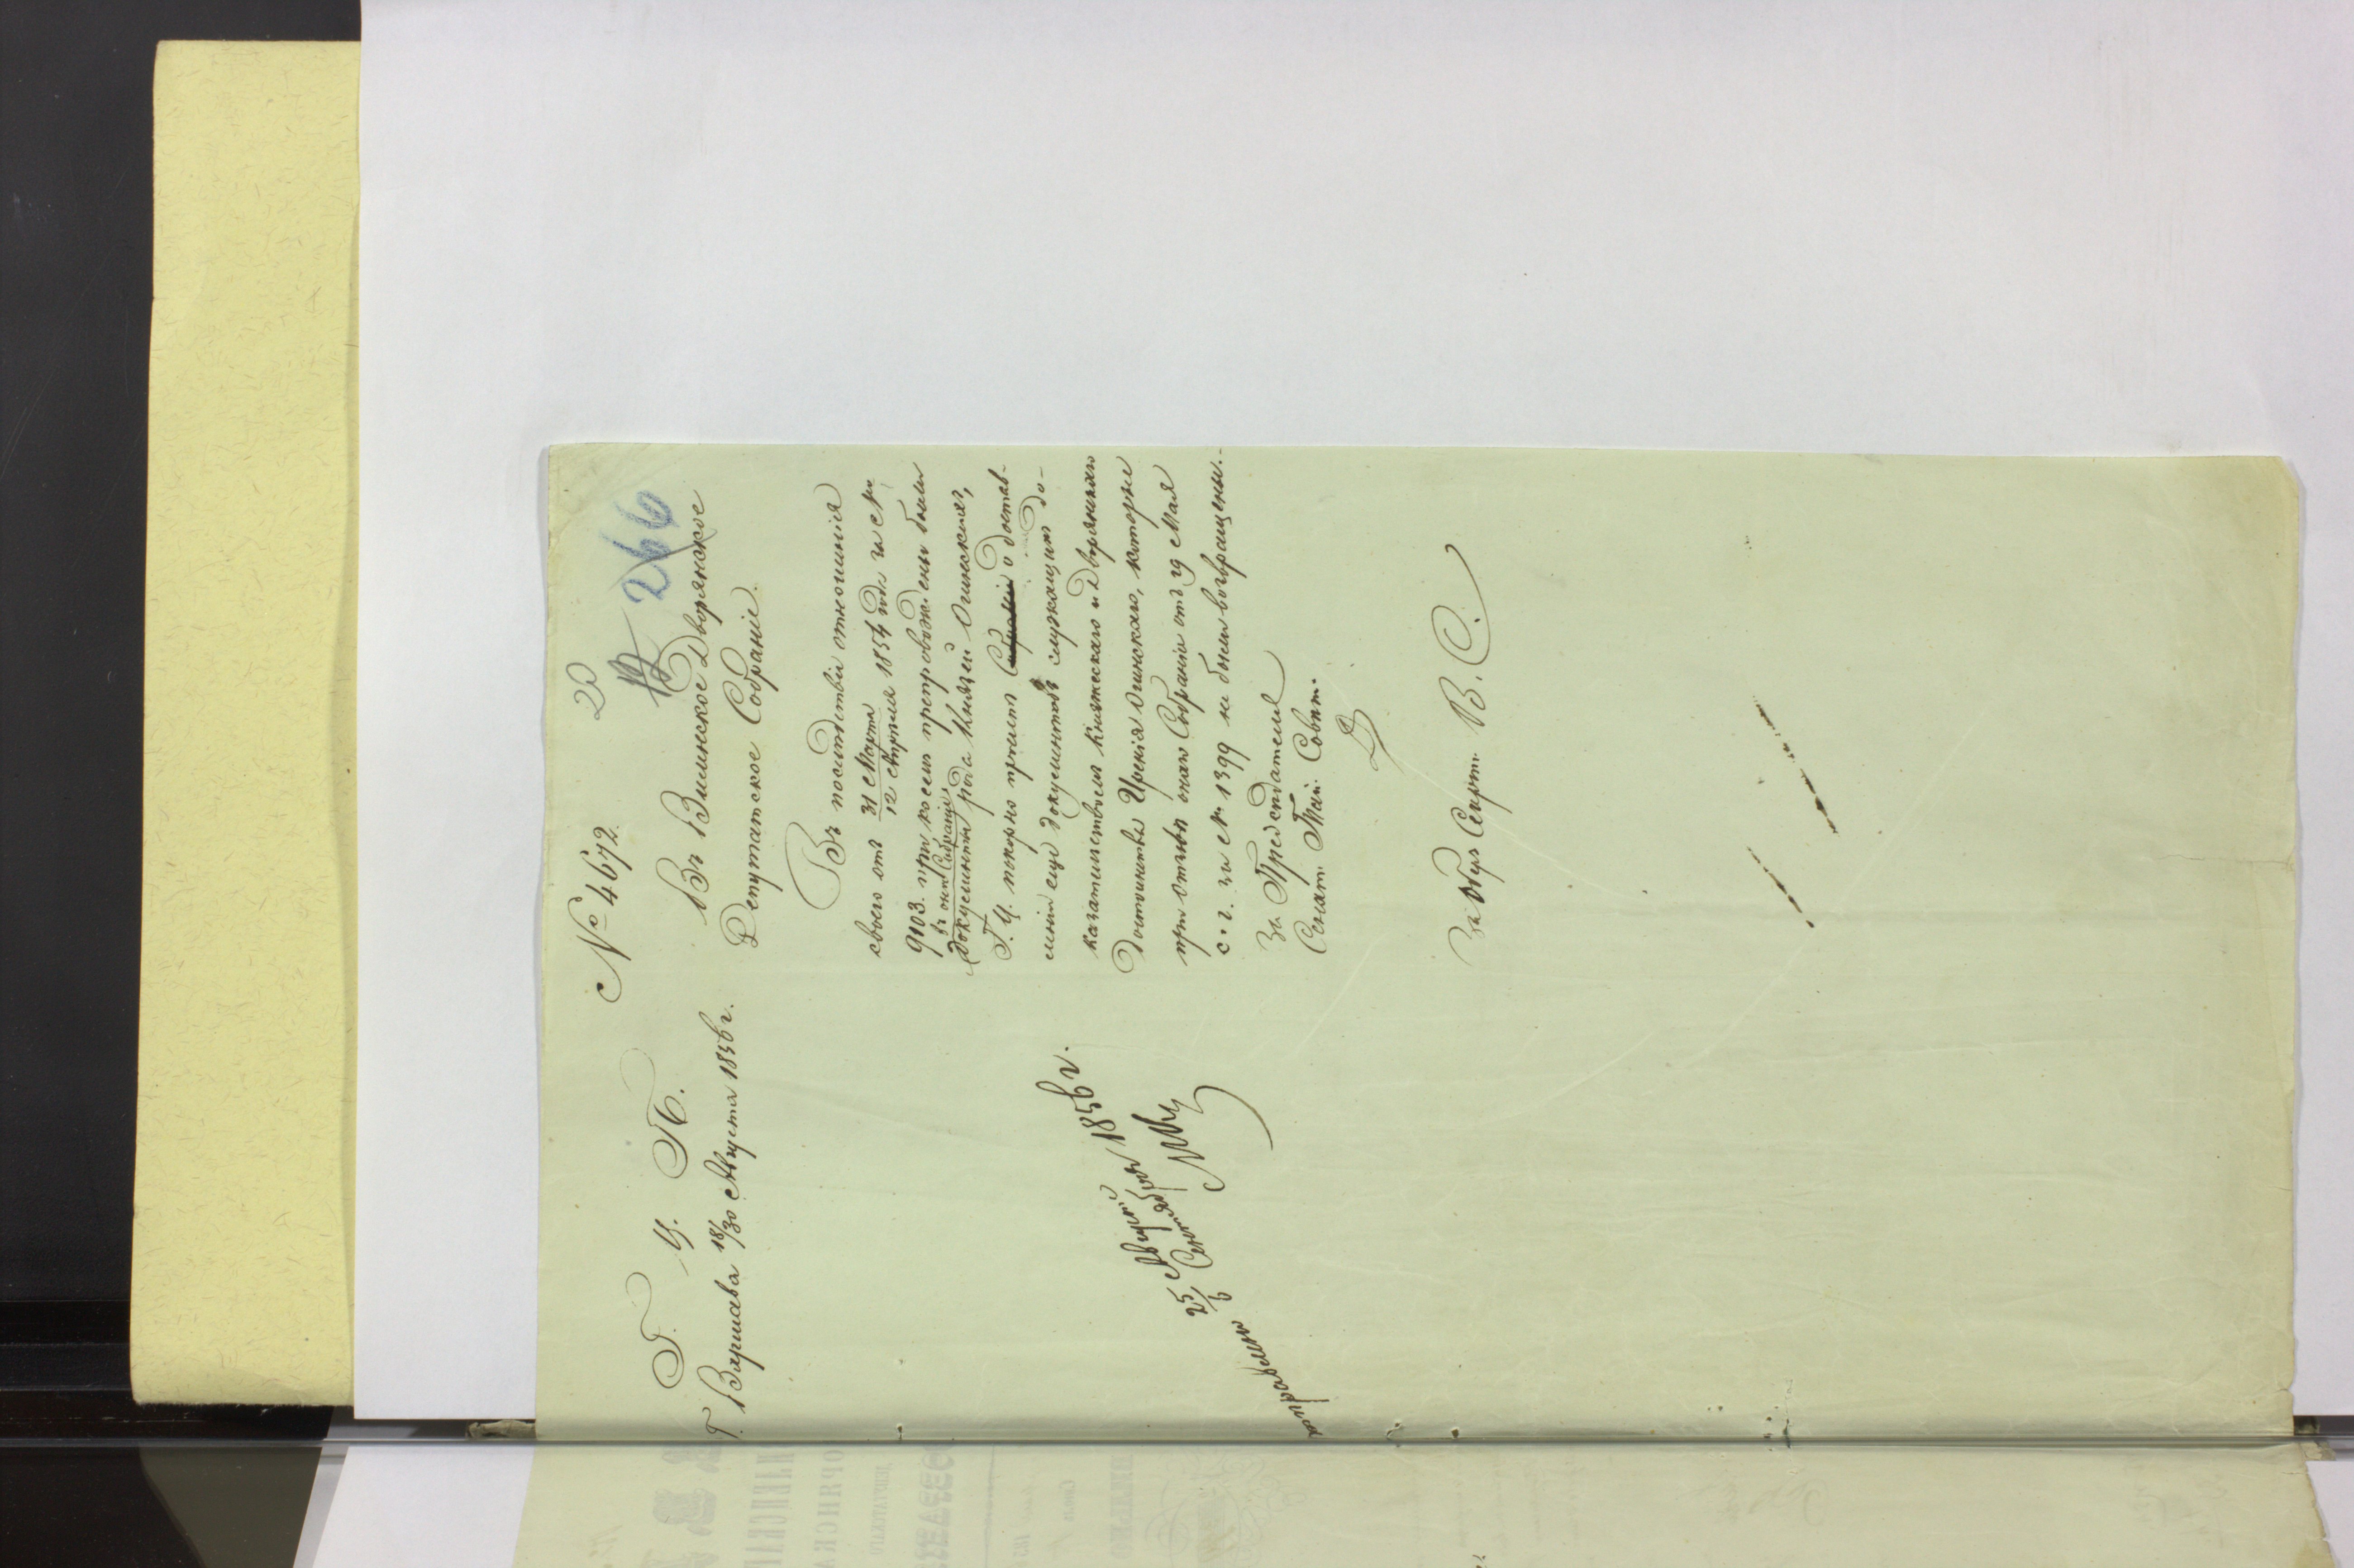 20
266
№ 4672.
Г. Ц. П.
Г. Варшава 18/30 Августа 1856 г.
Въ Виленское Дворянское
Депутатское Собраніе.
Въ послѣдствіи отношенія
своего отъ 31 Марта / 12 Апрѣля 1854 года за №
9103. при коемъ препровождены были
въ оное Собраніе
документы рода Князей Огинскихъ,
Г. Ц. покорно проситъ о достав-
леніи еще документовъ служащихъ до-
казательствомъ Княжескаго и Дворянскаго
достоинства Иренія Огинскаго, которые
при отзывѣ онаго Собранія отъ 29 Мая
с. г. за № 1399 не были возвращены.-
За Предсѣдателя
Сенат. Тай. Совѣт.
За Обер Секрт. В. С.
отправлено
25 Августа / 6 Сентября 1856 г.